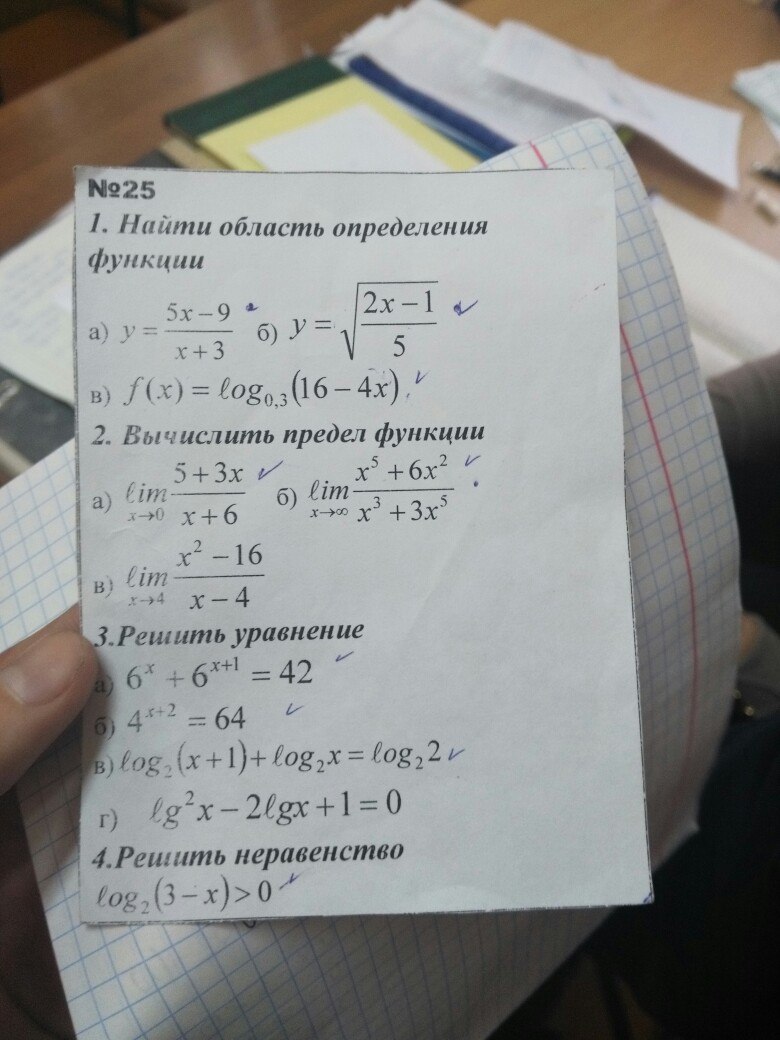 №25
1. Найти область определения
функции
а) y = (5x – 9)/(x + 3) б) y = √((2x – 1)/5)
в) f(x) = ℓog₀,₃(16 – 4x)
2. Вычислить предел функции
а) ℓim x→0 (5 + 3x)/(x + 6) б) ℓim x→∞ (x⁵ + 6x²)/(x³ + 3x⁵)
в) ℓim x→4 (x² – 16)/(x – 4)
3.Решить уравнение
а) 6ˣ + 6ˣ⁺¹ = 42
б) 4ˣ⁺² = 64
в) ℓog₂(x+1)+ℓog₂x = ℓog₂2
г) ℓg²x – 2ℓgx + 1 = 0
4.Решить неравенство
ℓog₂(3 – x) > 0